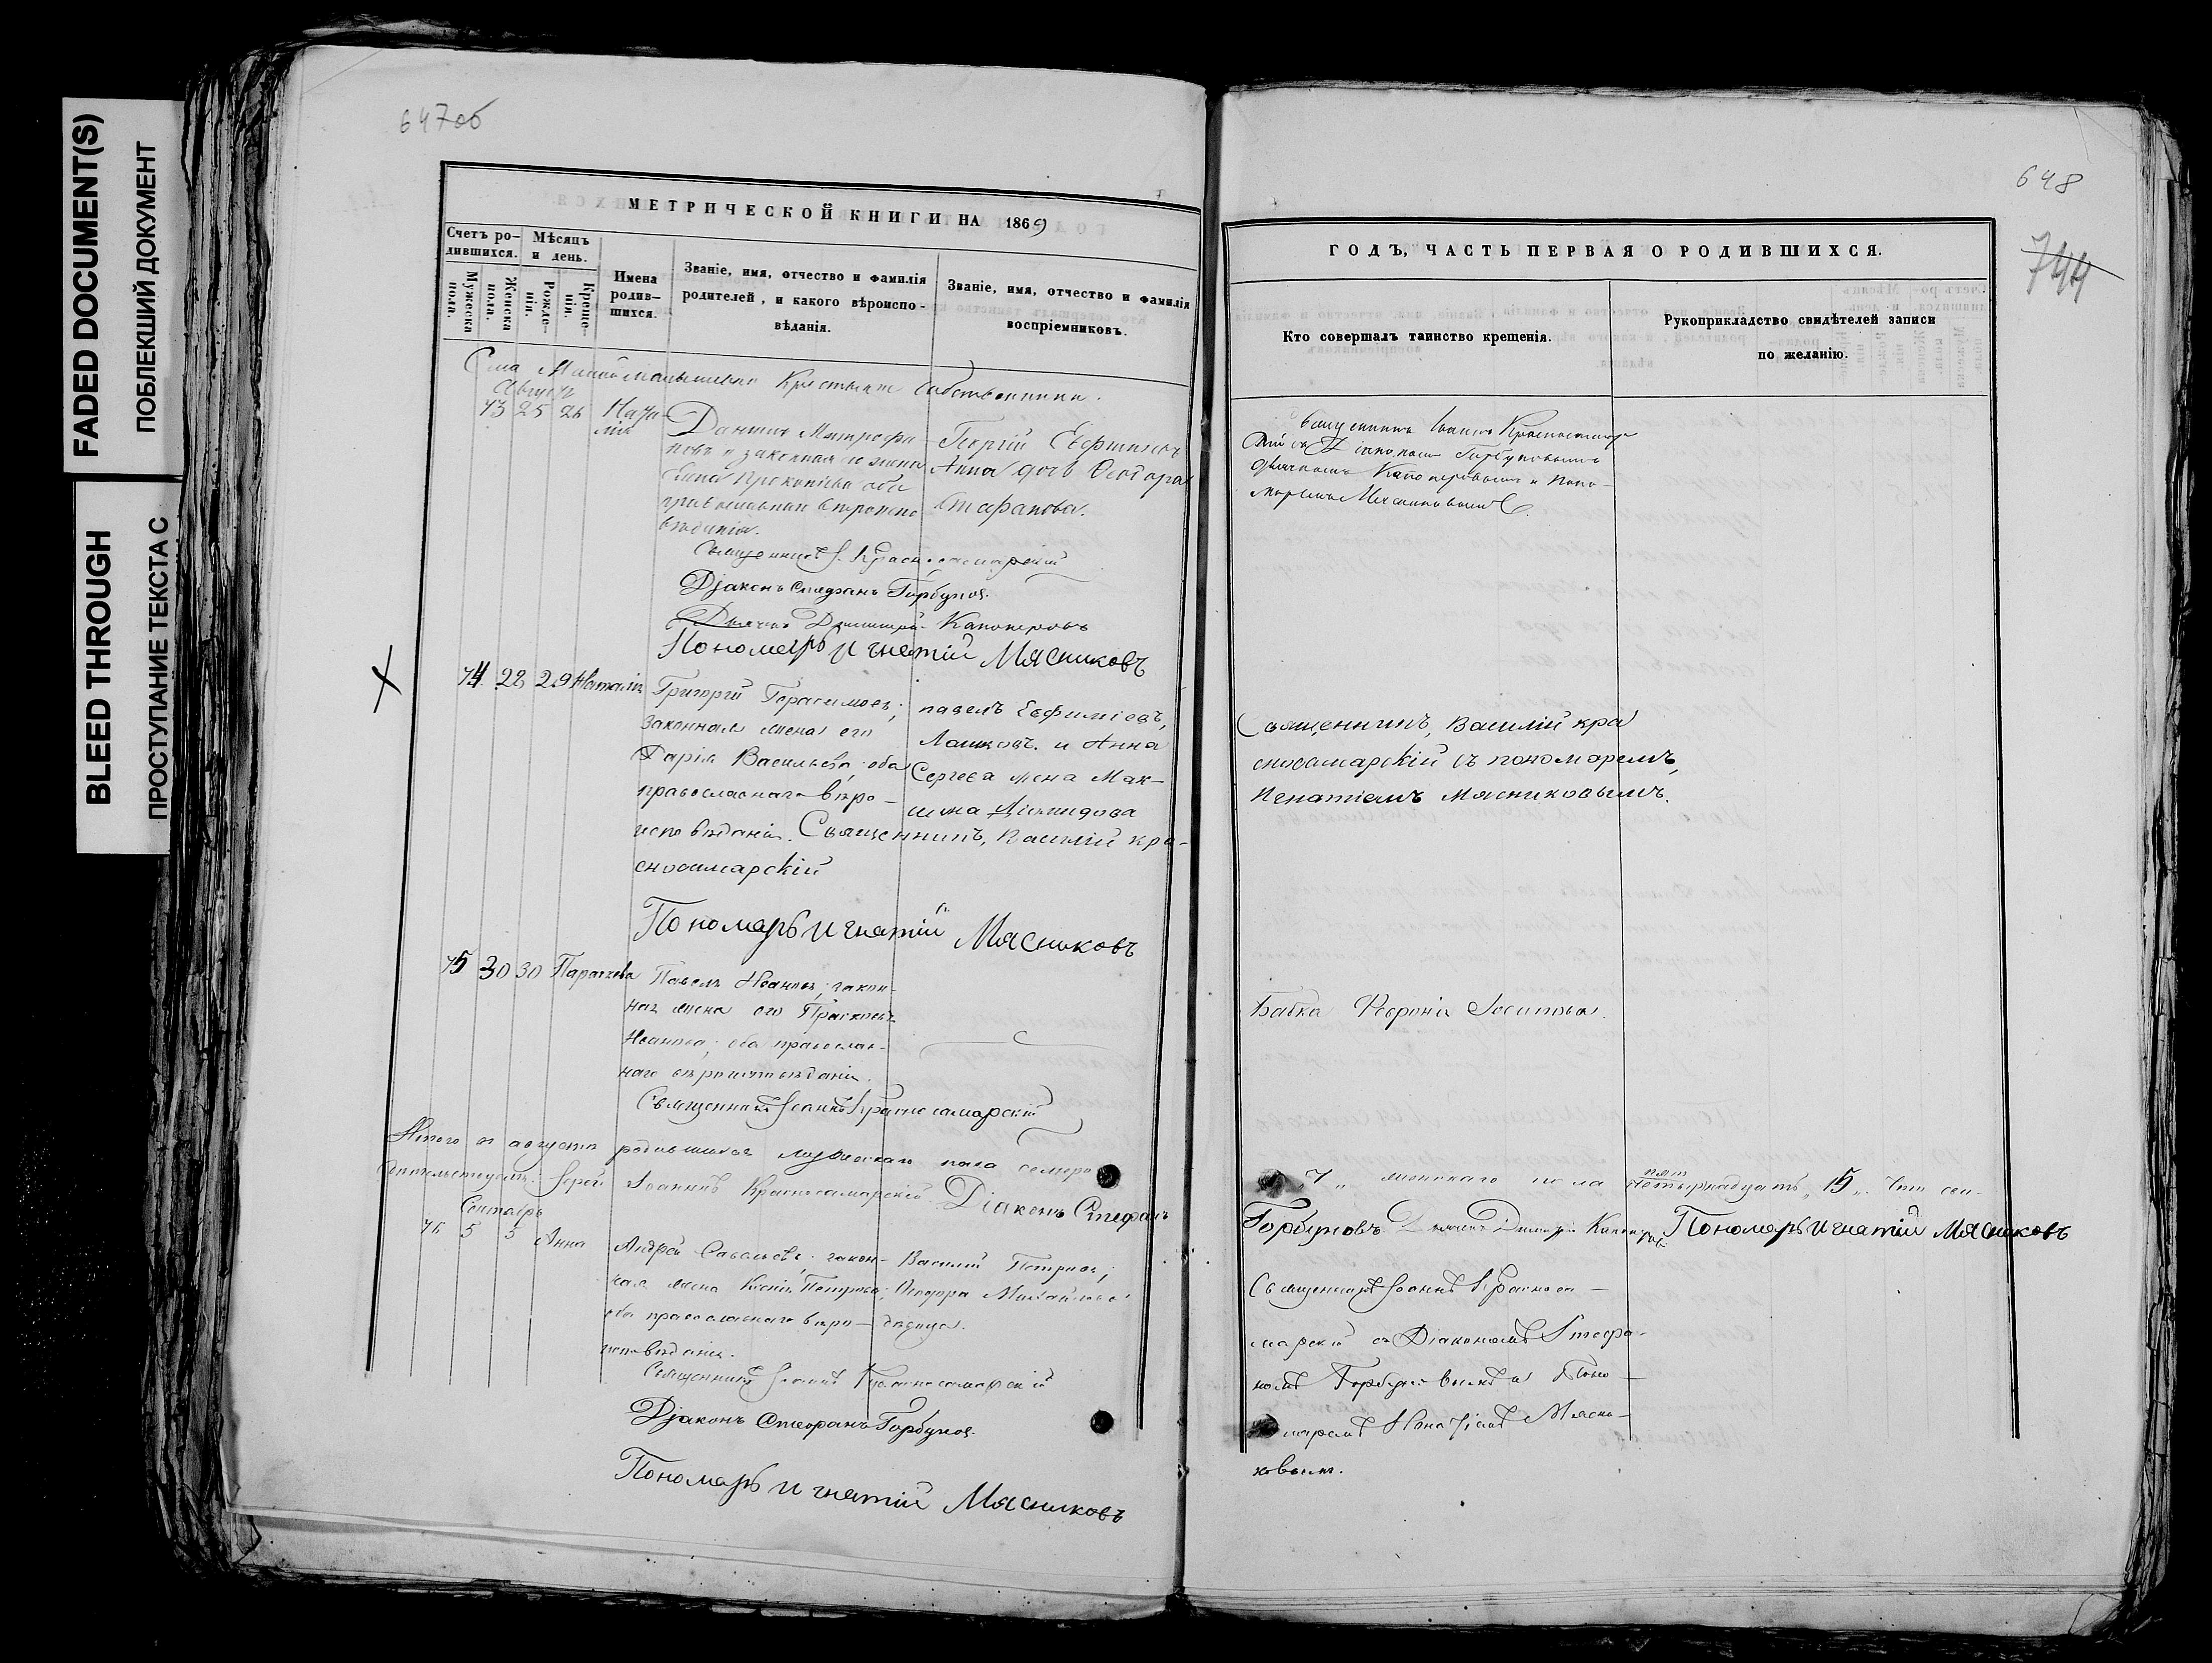 FADED DOCUMENT(S)
ПОБЛЕКШИЙ ДОКУМЕНТ
BLEED THROUGH
ПРОСТУПАНИЕ ТЕКСТА С
647об
МЕТРИЧЕСКОЙ КНИГИ НА 1869
Счетъ ро-
дившихся.
Мѣсяцъ
и день.
Мужеска
пола.
Женска
пола.
Рожде-
нія.
Креще-
нія.
Имена
родив-
шихся.
Званіе, имя, отчество и фамилія
родителей, и какого вѣроиспо-
вѣданія.
Званіе, имя, отчество и фамилія
воспріемниковъ.
Села Малой Малышевки Крестьяне собственники.
Августъ
73 25 26 Ната-
лія
Даніилъ Митрофа-
новъ и законная его жена
Прокопіева оба
православнаго вѣроиспо-
вѣданія.
Георгій Евфиміевъ
Анна дочь Ѳеодора
Стафанова.
Священникъ І. Красносамарскій
Діаконъ Стефанъ Горбуновъ
Дьячекъ Димитрій Каноперовъ
Пономарь Игнатій Мясниковъ
74 28 29 Наталія
Григорій Герасимовъ,
законная жена его
Дарія Васильева, оба
православнаго вѣро-
исповѣданія. Священникъ, Василій кра-
сносамарскій
павелъ Евфиміевъ,
Лашковъ. и Анна
Сергеева жена Мак-
сима Діамидова
Пономарь Игнатій Мясниковъ
75 30 30 Параскева
Павелъ Ивановъ, закон-
ная жена его Прасковья
Иванова, оба православ-
наго вѣроисповѣданія.
Священникъ Іоаннъ Красносамарскій
Итого въ августѣ родившихся мужескаго пола семеро
свидѣтельствуемъ: Іерей Іоаннъ Красносамарскій Діаконъ Стефанъ
Сентябрь
76 5 5 Анна
Андрей Савельевъ, закон-
ная жена Ксенія Петрова,
оба православнаго вѣро-
исповѣданія.
Василій Петровъ,
Ѳеодора Михайлова
дѣвица.
Священникъ Іоаннъ Красносамарскій
Діаконъ Стефанъ Горбуновъ
Пономарь Игнатій Мясниковъ
648
744
ГОДЪ, ЧАСТЬ ПЕРВАЯ О РОДИВШИХСЯ.
Кто совершалъ таинство крещенія.
Рукоприкладство свидѣтелей записи
по желанію.
Священникъ Іоаннъ Красносамар-
скій съ Діакономъ Горбуновымъ
дьячкомъ Каноперовымъ и Поно-
маремъ Мясниковымъ.
Священникъ, Василій кра
сносамарскій съ пономаремъ,
Игнатіемъ Мясниковымъ.
Бабка Ѳевронія Іосипова.
7 „ женскаго пола пят
четырнадцать „ 15 „. Что сви-
Горбуновъ Дьячекъ Димитрій Каноперовъ Пономарь Игнатій Мясниковъ
Священникъ Іоаннъ Красноса-
марскій съ Діакономъ Стефа-
номъ Горбуновымъ и Поно-
маремъ Игнатіемъ Мясни-
ковымъ.